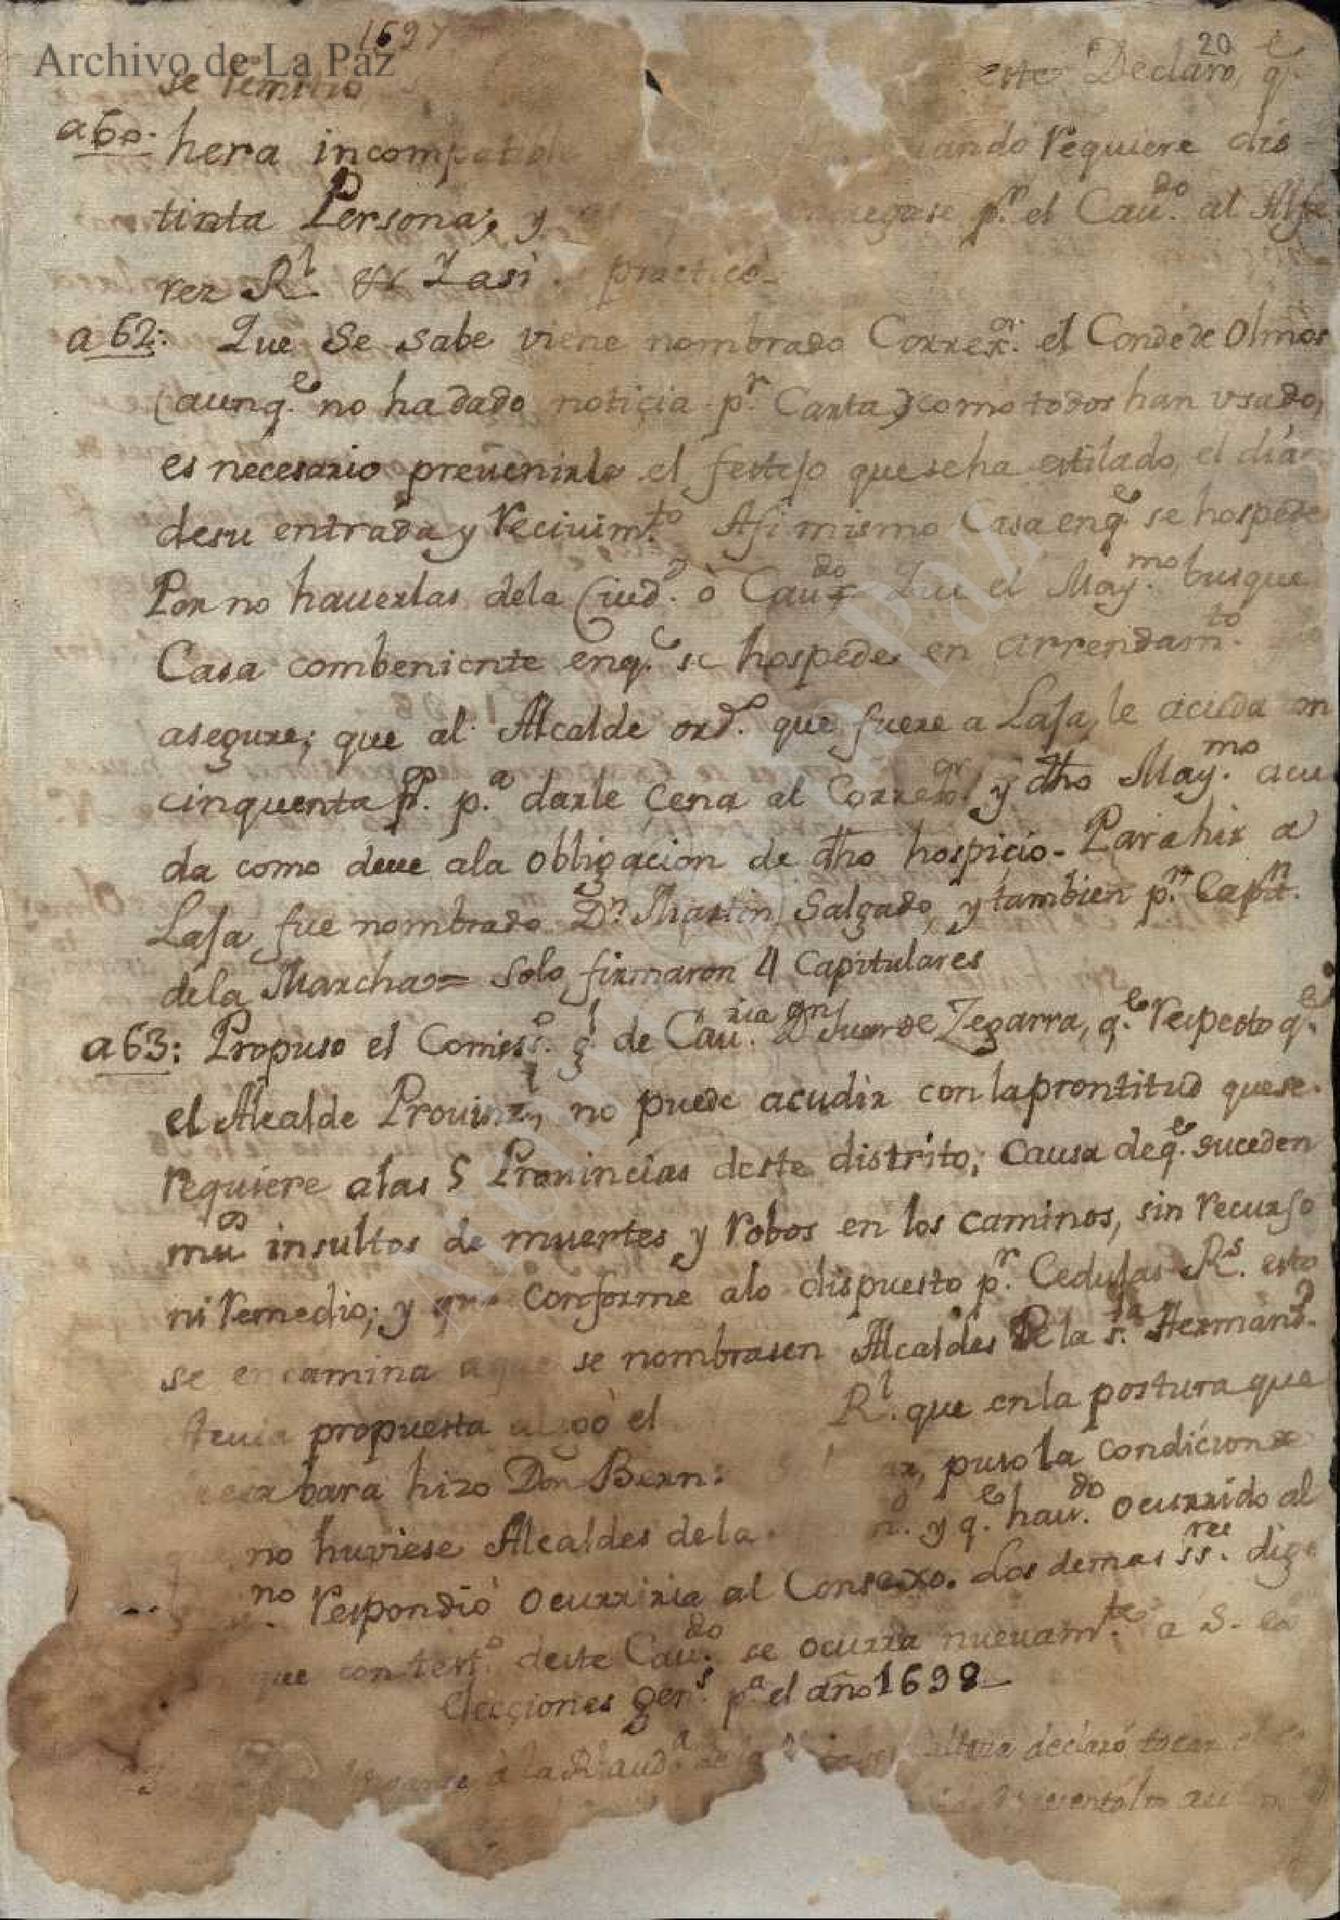 1697
20
Archivo de La Paz
se remitio este Declaro, q.e
a 60. hera incompatible ando requiere dis
tinta Persona; y p.r el Cau.do al Alfe
rez R.l & Zasi practicó
a 62: Que se sabe viene nombrado Correx.or el Conde de Olmos
(aunq.e no ha dado noticia p.r Carta) como todos han vsado,
es necesario preuenirle el festejo que se ha estilado, el dia
desu entrada y reciuim.to Asi mismo Casa enq.e se hospede
Por no hauerlas dela Ciud.d ò Cau.do Que el May.mo busque
Casa combeniente enq.e se hospede en arrendam.to
asegure; que al Alcalde ord.o que fuere a Lasa, le acuda con
cinquenta p.s p.a darle Çena al Correx.or y dho May.mo acu
da como deue ala obligacion de dho hospicio - Para hir a
Lasa fue nombrado D.n Martin Salgado, y tambien p.r Cap.n
dela Marcha = solo firmaron 4 Capitulares
a 63: Propuso el Comis.o g.l de Cau.ria D.n Juan de Zegarra, q.e respecto q.e
el Alcalde Prouin.l, no puede acudir con la prontitud que se
requiere alas 5 Prouincias deste distrito; Causa deq.e suceden
mu.os insultos de muertes y robos en los caminos, sin recurso
ni remedio; y q.e Conforme alo dispuesto p.r Cedulas R.s esto
se encamina aque se nombrasen Alcaldes De la s.ta Hermand.d
propuesta el R.l que en la postura que
bara hizo Don Bern: puso la condicion de
que no huviese Alcaldes de la d. y q.e hau.do ocurrido al
no respondió ocurriria al Consexo. Los demas ss.res dige
que con test.o deste Cau.do se ocurra nueuam.te a S. ex
Elecçiones gen.s p.a el año 1698
a la R.l aud.a declaró tocar